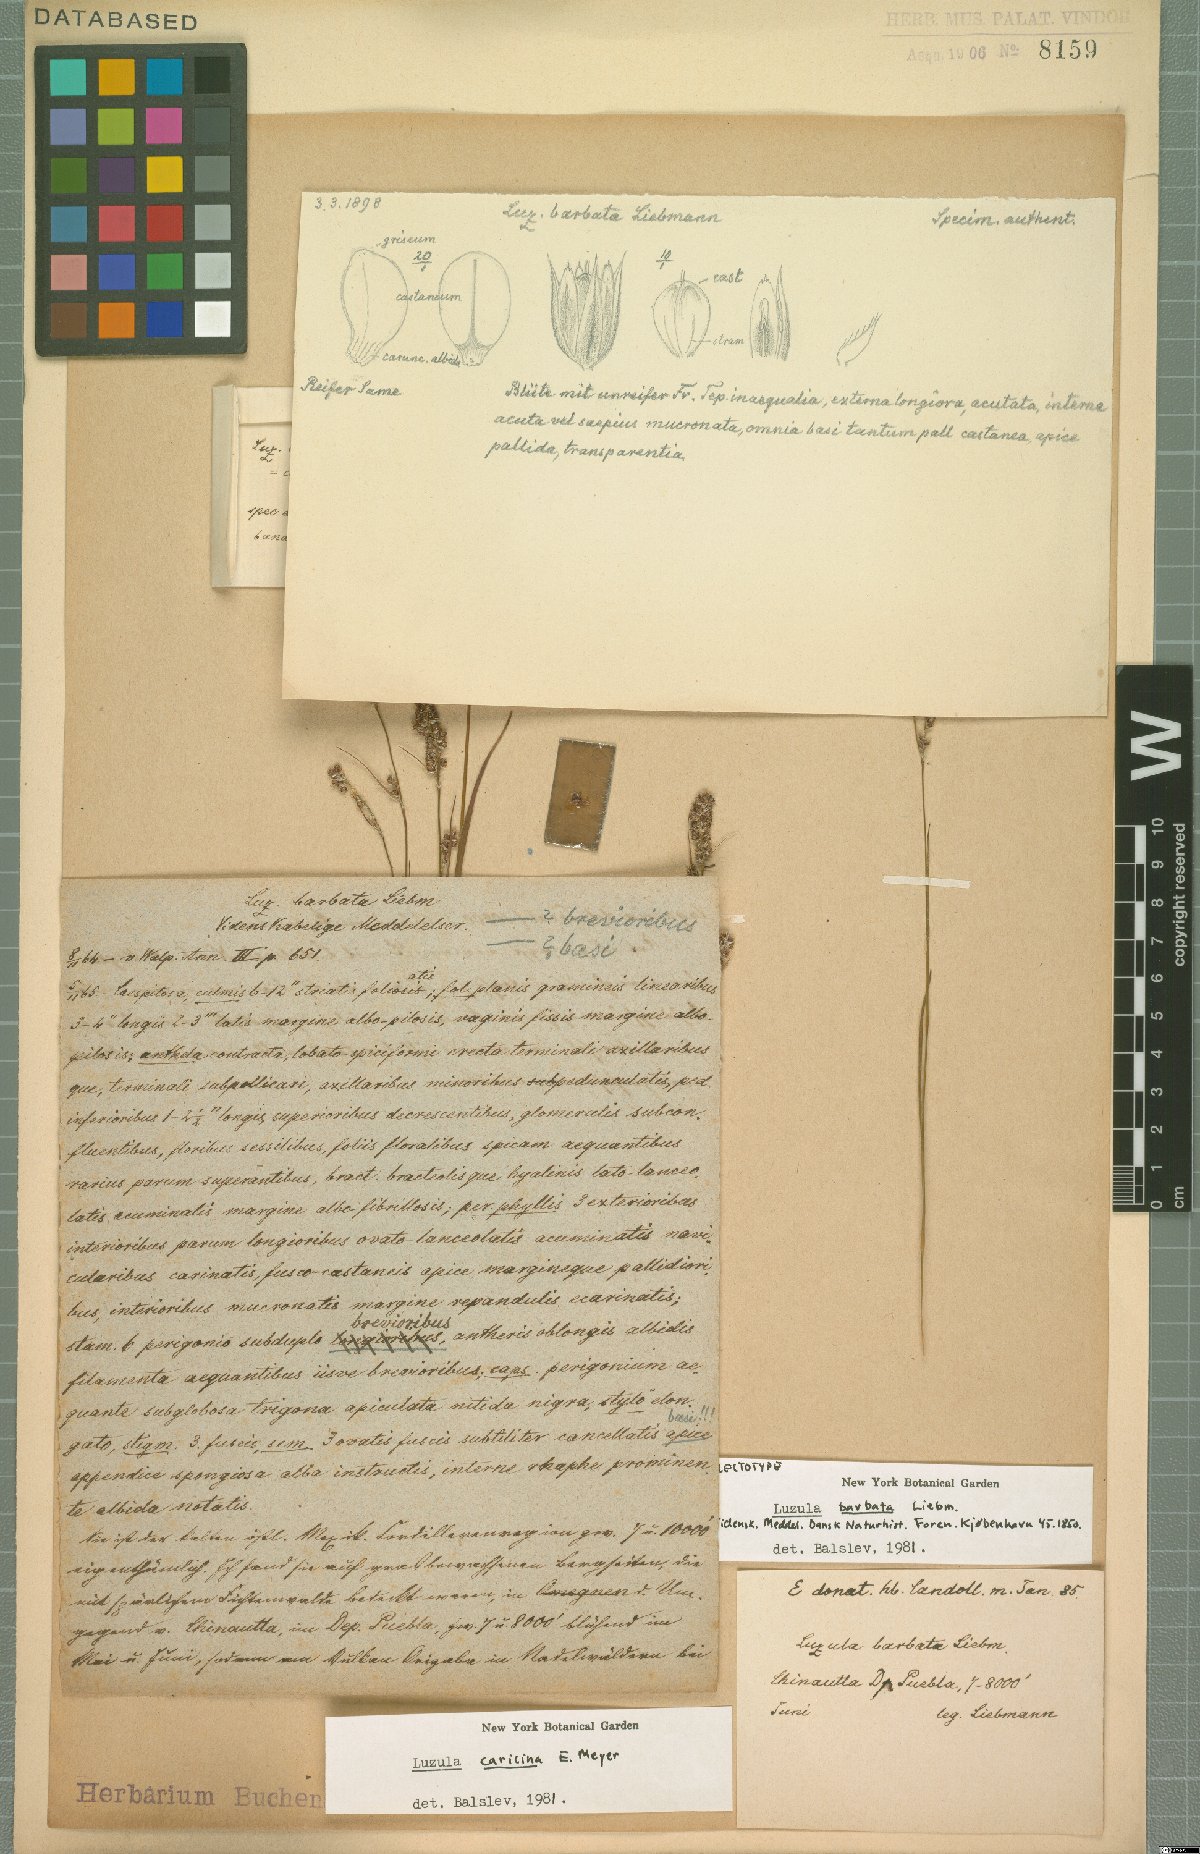 DATABASED
HERB. MUS. PALAT. VINDOB
Acqu. 1906 No 8159
3.3.1898
Luz. barbata Liebmann
Specim. authent.
griseum
20/1
castaneum
carunc. albida
10/1
cast
stram
Reifer Same
Blüte mit unreifer Fr. Tep inaequalia, externa longiora, acutata, interna
acuta vel saepius mucronata, omnia basi tantum pall castanea, apice
pallida, transparentia.
Luz.
spec
bana
Luz. barbata Liebm
Videnskabelige Meddelelser.
— ? brevioribus
— ? basi
64 — v Walp. Ann III p. 651
65. Caespitosa, culmis 6-12" striati foliosis, fol planis gramineis linearibus
atis
3-4" longis 2-3''' latis margine albo-pilosis, vaginis fissis margine albo-
pilosis; anthela contracta, lobato-spiciformi erecta terminali axillaribus
que, terminali subpollicari, axillaribus minoribus subpedunculatis, ped.
inferioribus 1-2½" longis, superioribus decrescentibus, glomerulis subcon-
fluentibus, floribus sessilibus, foliis floralibus spicam aequantibus
rarius parum superantibus, bract. bracteolisque hyalinis lato-lanceo-
latis acuminatis margine albo fibrillosis; per phyllis 3 exterioribus
interioribus parum longioribus ovato-lanceolatis acuminatis navi-
cularibus carinatis, fusco-castaneis apice margineque pallidiori-
bus, interioribus mucronatis margine repandulis ecarinatis;
brevioribus
stam. 6 perigonio subduplo longioribus, antheris oblongis albidis
filamenta aequantibus iisve brevioribus; caps. perigonium ae-
quante subglobosa trigona apiculata nitida nigra, stylo elon-
basi!!!
gato, stigm. 3. fuscis, sem. 3 ovatis fuscis subtiliter cancellatis apice
appendice spongiosa alba instructis, interne rhaphe prominen-
te albida notatis.
Sie ist der kalten östl. Mexik. Cordillerenregion zw. 7 u. 10000'
eigenthümlich. Ich fand sie auf grasbewachsenen Bergseiten, die
mit spärlichem Fichtenwalde bedeckt waren, in d. Um-
gegend v. Chinautla, im Dep. Puebla, zw. 7 u 8000' blühend im
Mai u. Juni, sodann am Vulkan Orizaba in Nadelwäldern bei
LECTOTYPE
New York Botanical Garden
Luzula barbata Liebm.
Vidensk. Meddel. Dansk Naturhist. Foren. Kjøbenhavn 45. 1850.
det. Balslev, 1981.
E donat. hb. Candoll. m. Jan 85
Luzula barbata Liebm.
Chinautla Dp Puebla, 7-8000'
Juni leg. Liebmann
New York Botanical Garden
Luzula caricina E. Meyer
det. Balslev, 1981.
Herbarium Buchen
W
copyright reserved
10
9
8
7
6
5
4
3
2
1
0
cm